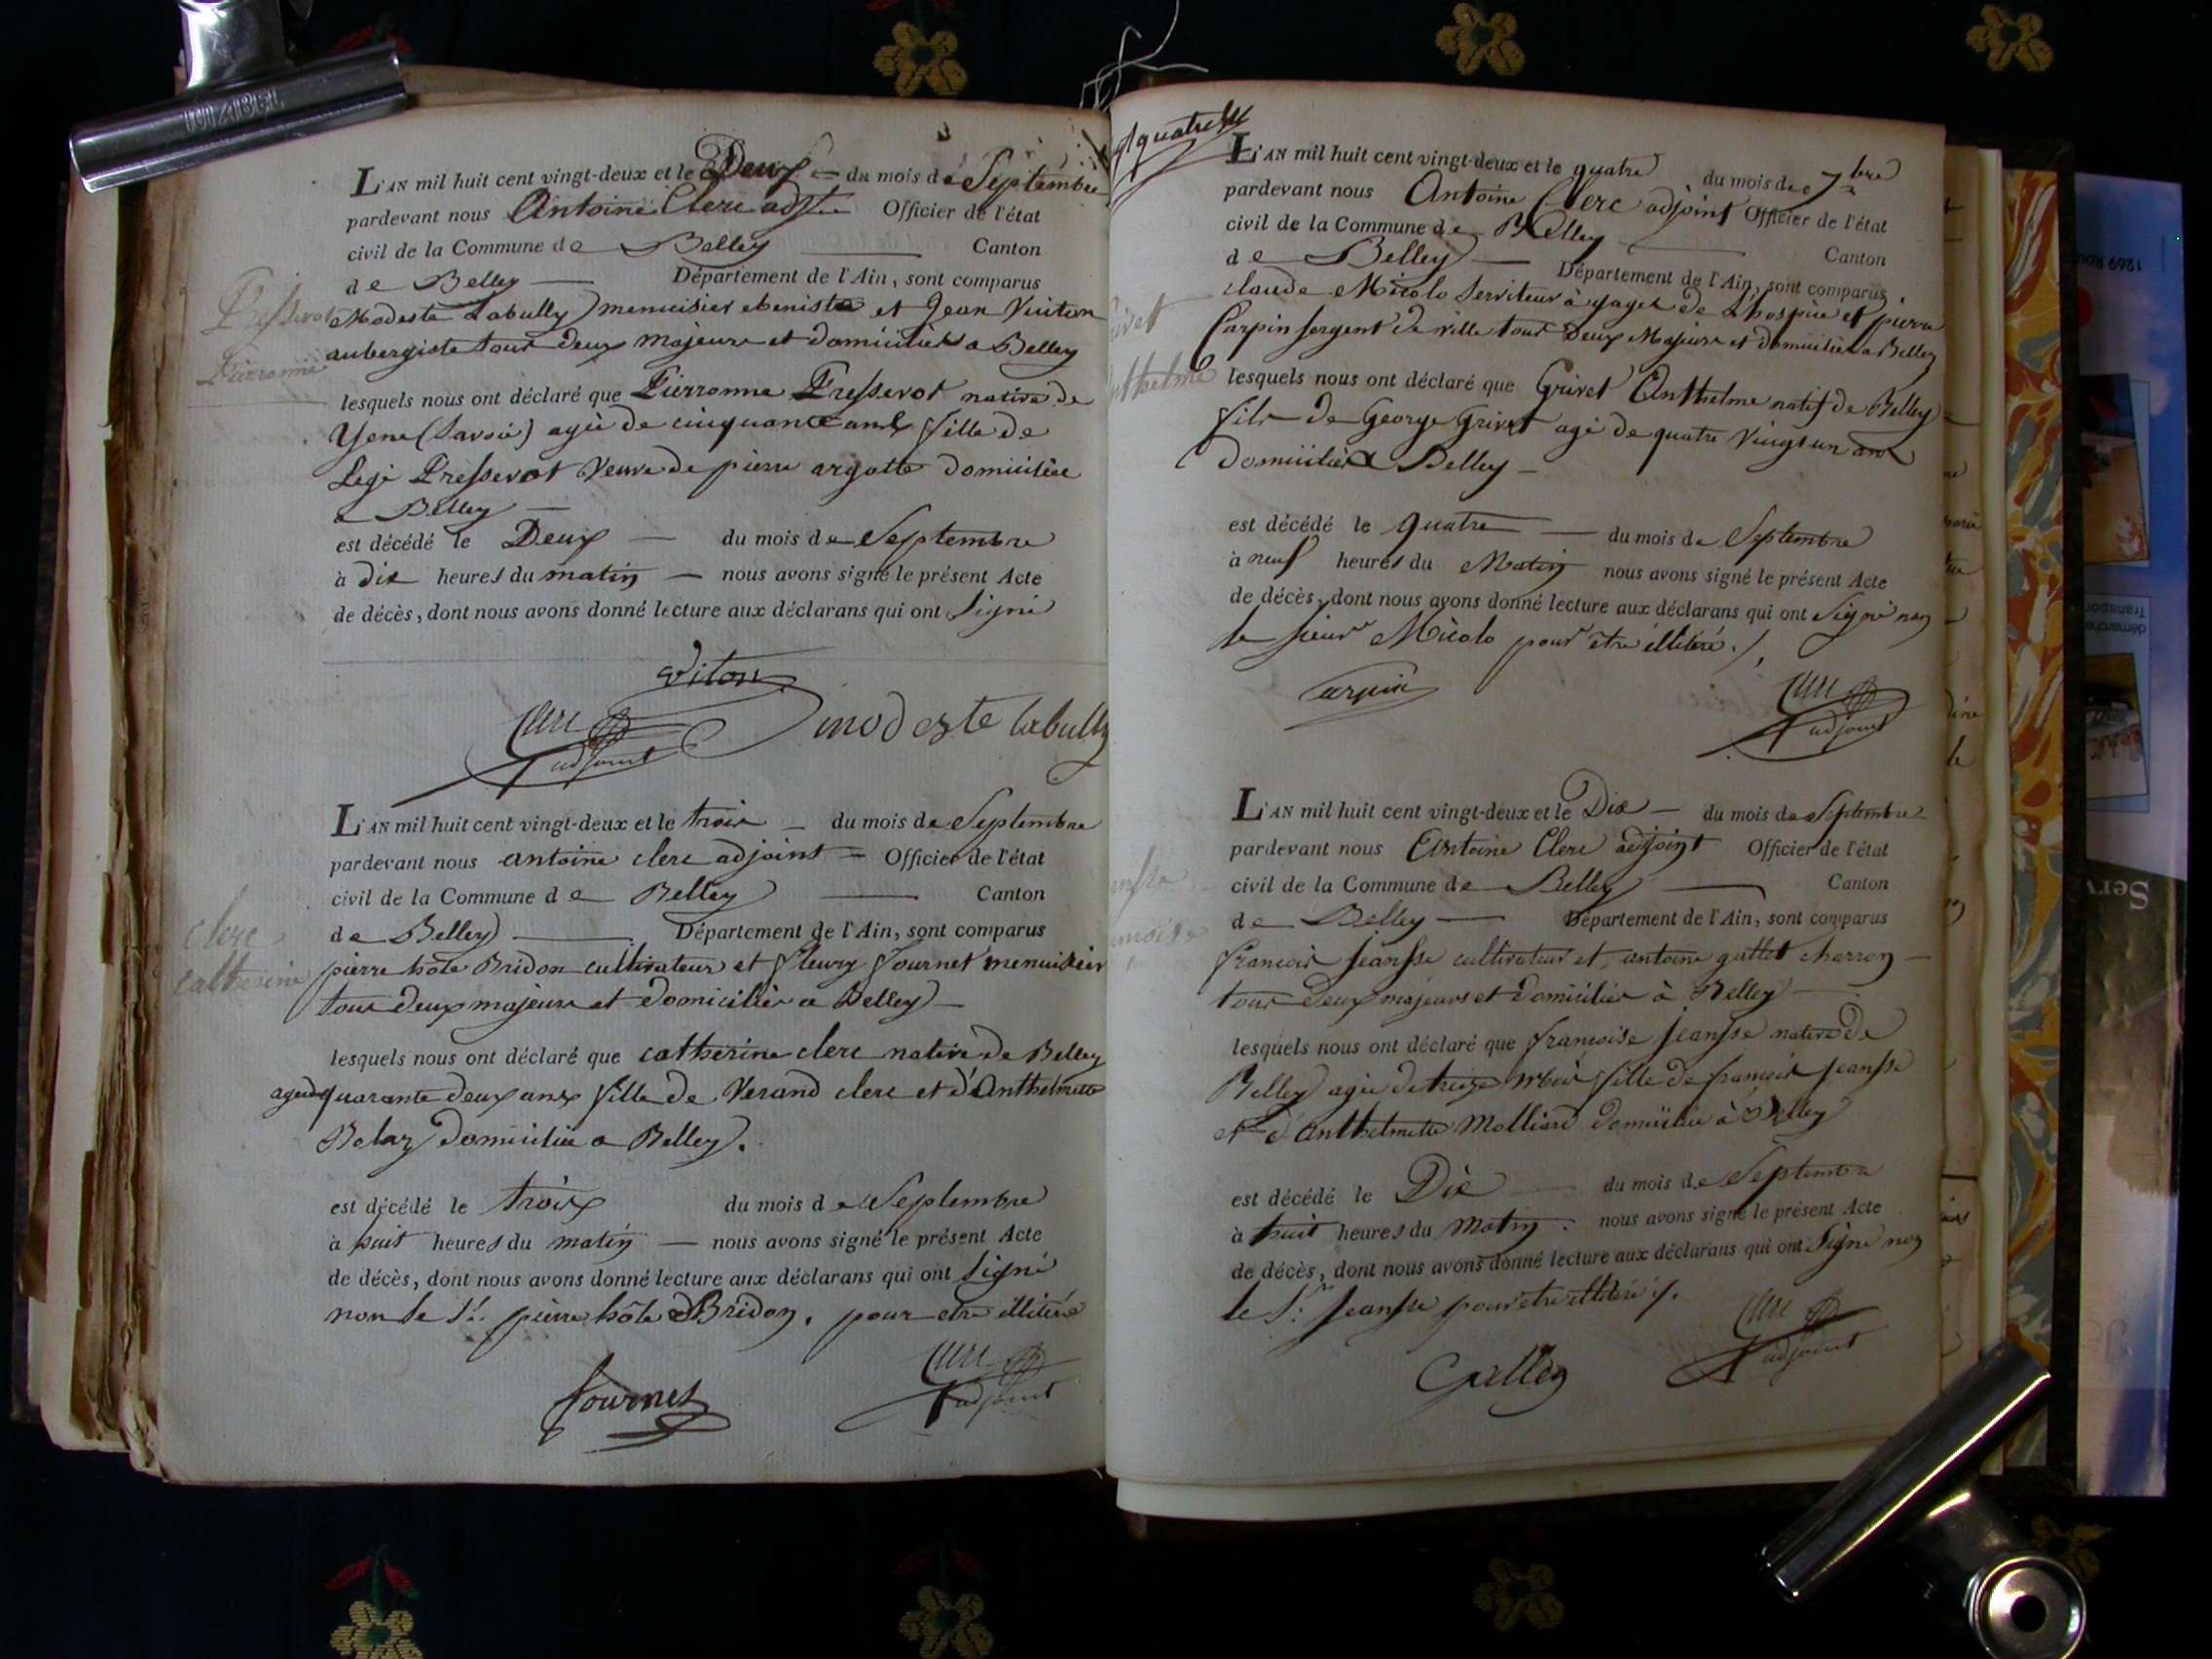 L'AN mil huit cent vingt-deux et le Deux du mois de Septembre
pardevant nous Antoine Clerc adjt Officier de l'état
civil de la Commune de Belley Canton
de Belley Département de l'Ain, sont comparus
Modeste Labully menuisier ebeniste et Jean Vuiton
aubergiste tous deux majeurs et domiciliés a Belley
lesquels nous ont déclaré que Pierronne Presserot native de
Yene (Savoie) agée de cinquante ans fille de
Legé Presserot Veuve de pierre argotte domiciliée
a Belley
est décédé le Deux du mois de Septembre
à dix heures du matin nous avons signé le présent Acte
de décès, dont nous avons donné lecture aux déclarans qui ont Signé
Presserot
Pierronne
Viton
Clerc
adjoint
modeste labully
L'AN mil huit cent vingt-deux et le trois du mois de Septembre
pardevant nous antoine clerc adjoint Officier de l'état
civil de la Commune de Belley Canton
de Belley Département de l'Ain, sont comparus
pierre hôte Bridon cultivateur et fleury fournet menuisier
tous deux majeurs et domiciliés a Belley
lesquels nous ont déclaré que catherine clerc native de Belley
agée de quarante deux ans fille de Verand clerc et d'Anthelmette
Belay domiciliée a Belley.
est décédé le trois du mois de Septembre
à huit heures du matin nous avons signé le présent Acte
de décès, dont nous avons donné lecture aux déclarans qui ont Signé
non le Sr. pierre hôte Bridon, pour etre illitéré
clerc
catherine
fournet
Clerc
adjoint
quatre
L'AN mil huit cent vingt-deux et le quatre du mois de 7bre
pardevant nous Antoine Clerc adjoint Officier de l'état
civil de la Commune de Belley Canton
de Belley Département de l'Ain, sont comparus
claude Micolo serviteur à gages de L'hospice et pierre
Carpin sergent de ville tous Deux Majeurs et domiciliés a Belley
lesquels nous ont déclaré que Grivet Anthelme natif de Belley
fils de George Grivet agé de quatre vingts un ans
domicilié à Belley
est décédé le quatre du mois de Septembre
à neuf heures du Matin nous avons signé le présent Acte
de décès, dont nous avons donné lecture aux déclarans qui ont Signé non
le sieur Micolo pour être illitéré.
Carpin
Clerc
adjoint
L'AN mil huit cent vingt-deux et le Dix du mois de Septembre
pardevant nous Antoine Clerc adjoint Officier de l'état
civil de la Commune de Belley Canton
de Belley Département de l'Ain, sont comparus
francois Jeansse cultivateur et antoine gallet charron
tous deux majeurs et domiciliés à Belley
lesquels nous ont déclaré que françoise Jeansse native de
Belley agée de treize mois fille de françois Jeansse
et d'Anthelmette Molliard domiciliée à Belley
est décédé le Dix du mois de Septembre
à huit heures du Matin. nous avons signé le présent Acte
de décès, dont nous avons donné lecture aux déclarans qui ont Signé non
le Sr. Jeansse pour etre illitéré.
Gallet
Clerc
adjoint